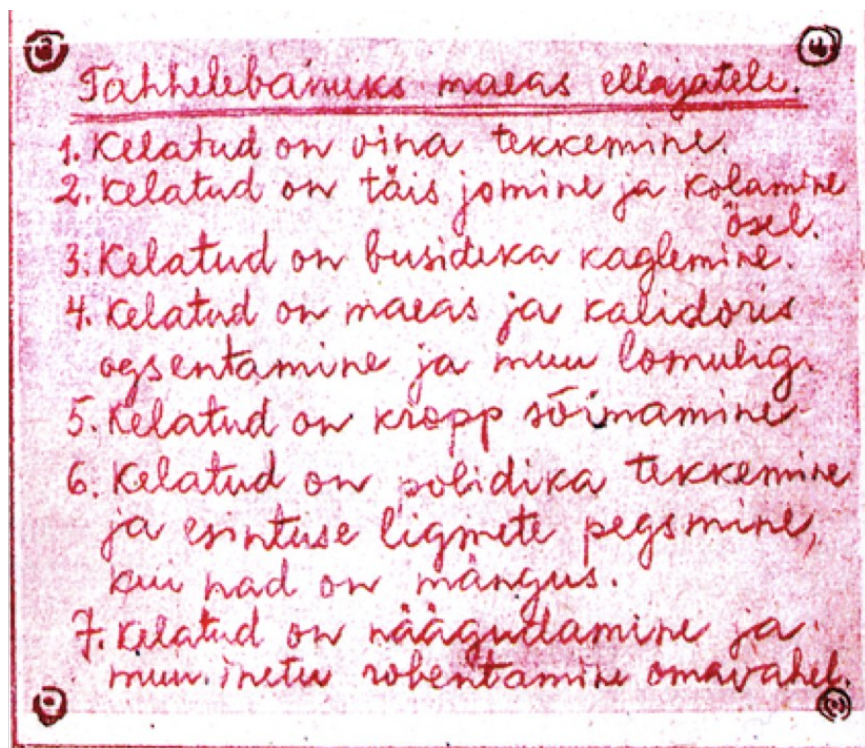 Tahhelebanuks maeas ellajatele.
1. Kelatud on vina tekkemine.
2. Kelatud on täis jomine ja kolamine
ösel.
3. Kelatud on busideka kaglemine.
4. Kelatud on maeas ja kalidoris
ogsentamine ja muu lomulig.
5. Kelatud on kropp sõimamine
6. Kelatud on polidika tekkemine
ja esintuse ligmete pegsmine,
kui nad on mängus.
7. Kelatud on näägutlamine ja
muu inetu robentamine omavahel.